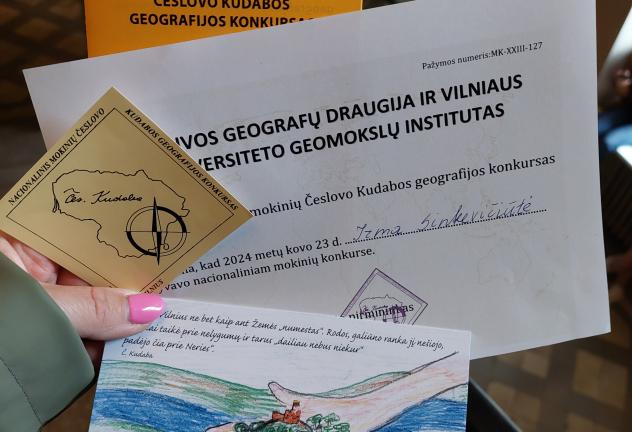 ČESLOVO KUDABOS
GEOGRAFIJOS KONKURSAS
Pažymos numeris:MK-XXIII-127
IVOS GEOGRAFŲ DRAUGIJA IR VILNIAUS
VERSITETO GEOMOKSLŲ INSTITUTAS
mokinių Česlovo Kudabos geografijos konkursas
kad 2024 metų kovo 23 d. Irma Sinkevičiūtė
vavo nacionaliniam mokinių konkurse.
NACIONALINIS MOKINIŲ ČESLOVO
KUDABOS GEOGRAFIJOS KONKURSAS
Čes. Kudaba
VILNIUS
pirmininkas
Vilnius ne bet kaip ant Žemės „numestas“. Rodos, galiūno ranka jį nešiojo,
taikė prie nelygumų ir tarus „dailiau nebus niekur“
padėjo čia prie Neries“.
Č. Kudaba